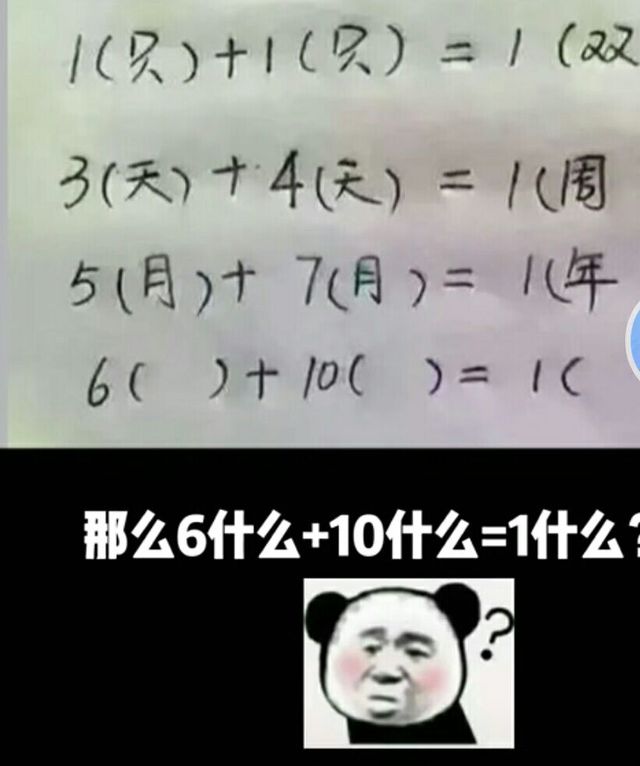 1(只)+1(只)=1(双
3(天)+4(天)=1(周
5(月)+7(月)=1(年
6( )+10( )=1(
那么6什么+10什么=1什么?
?